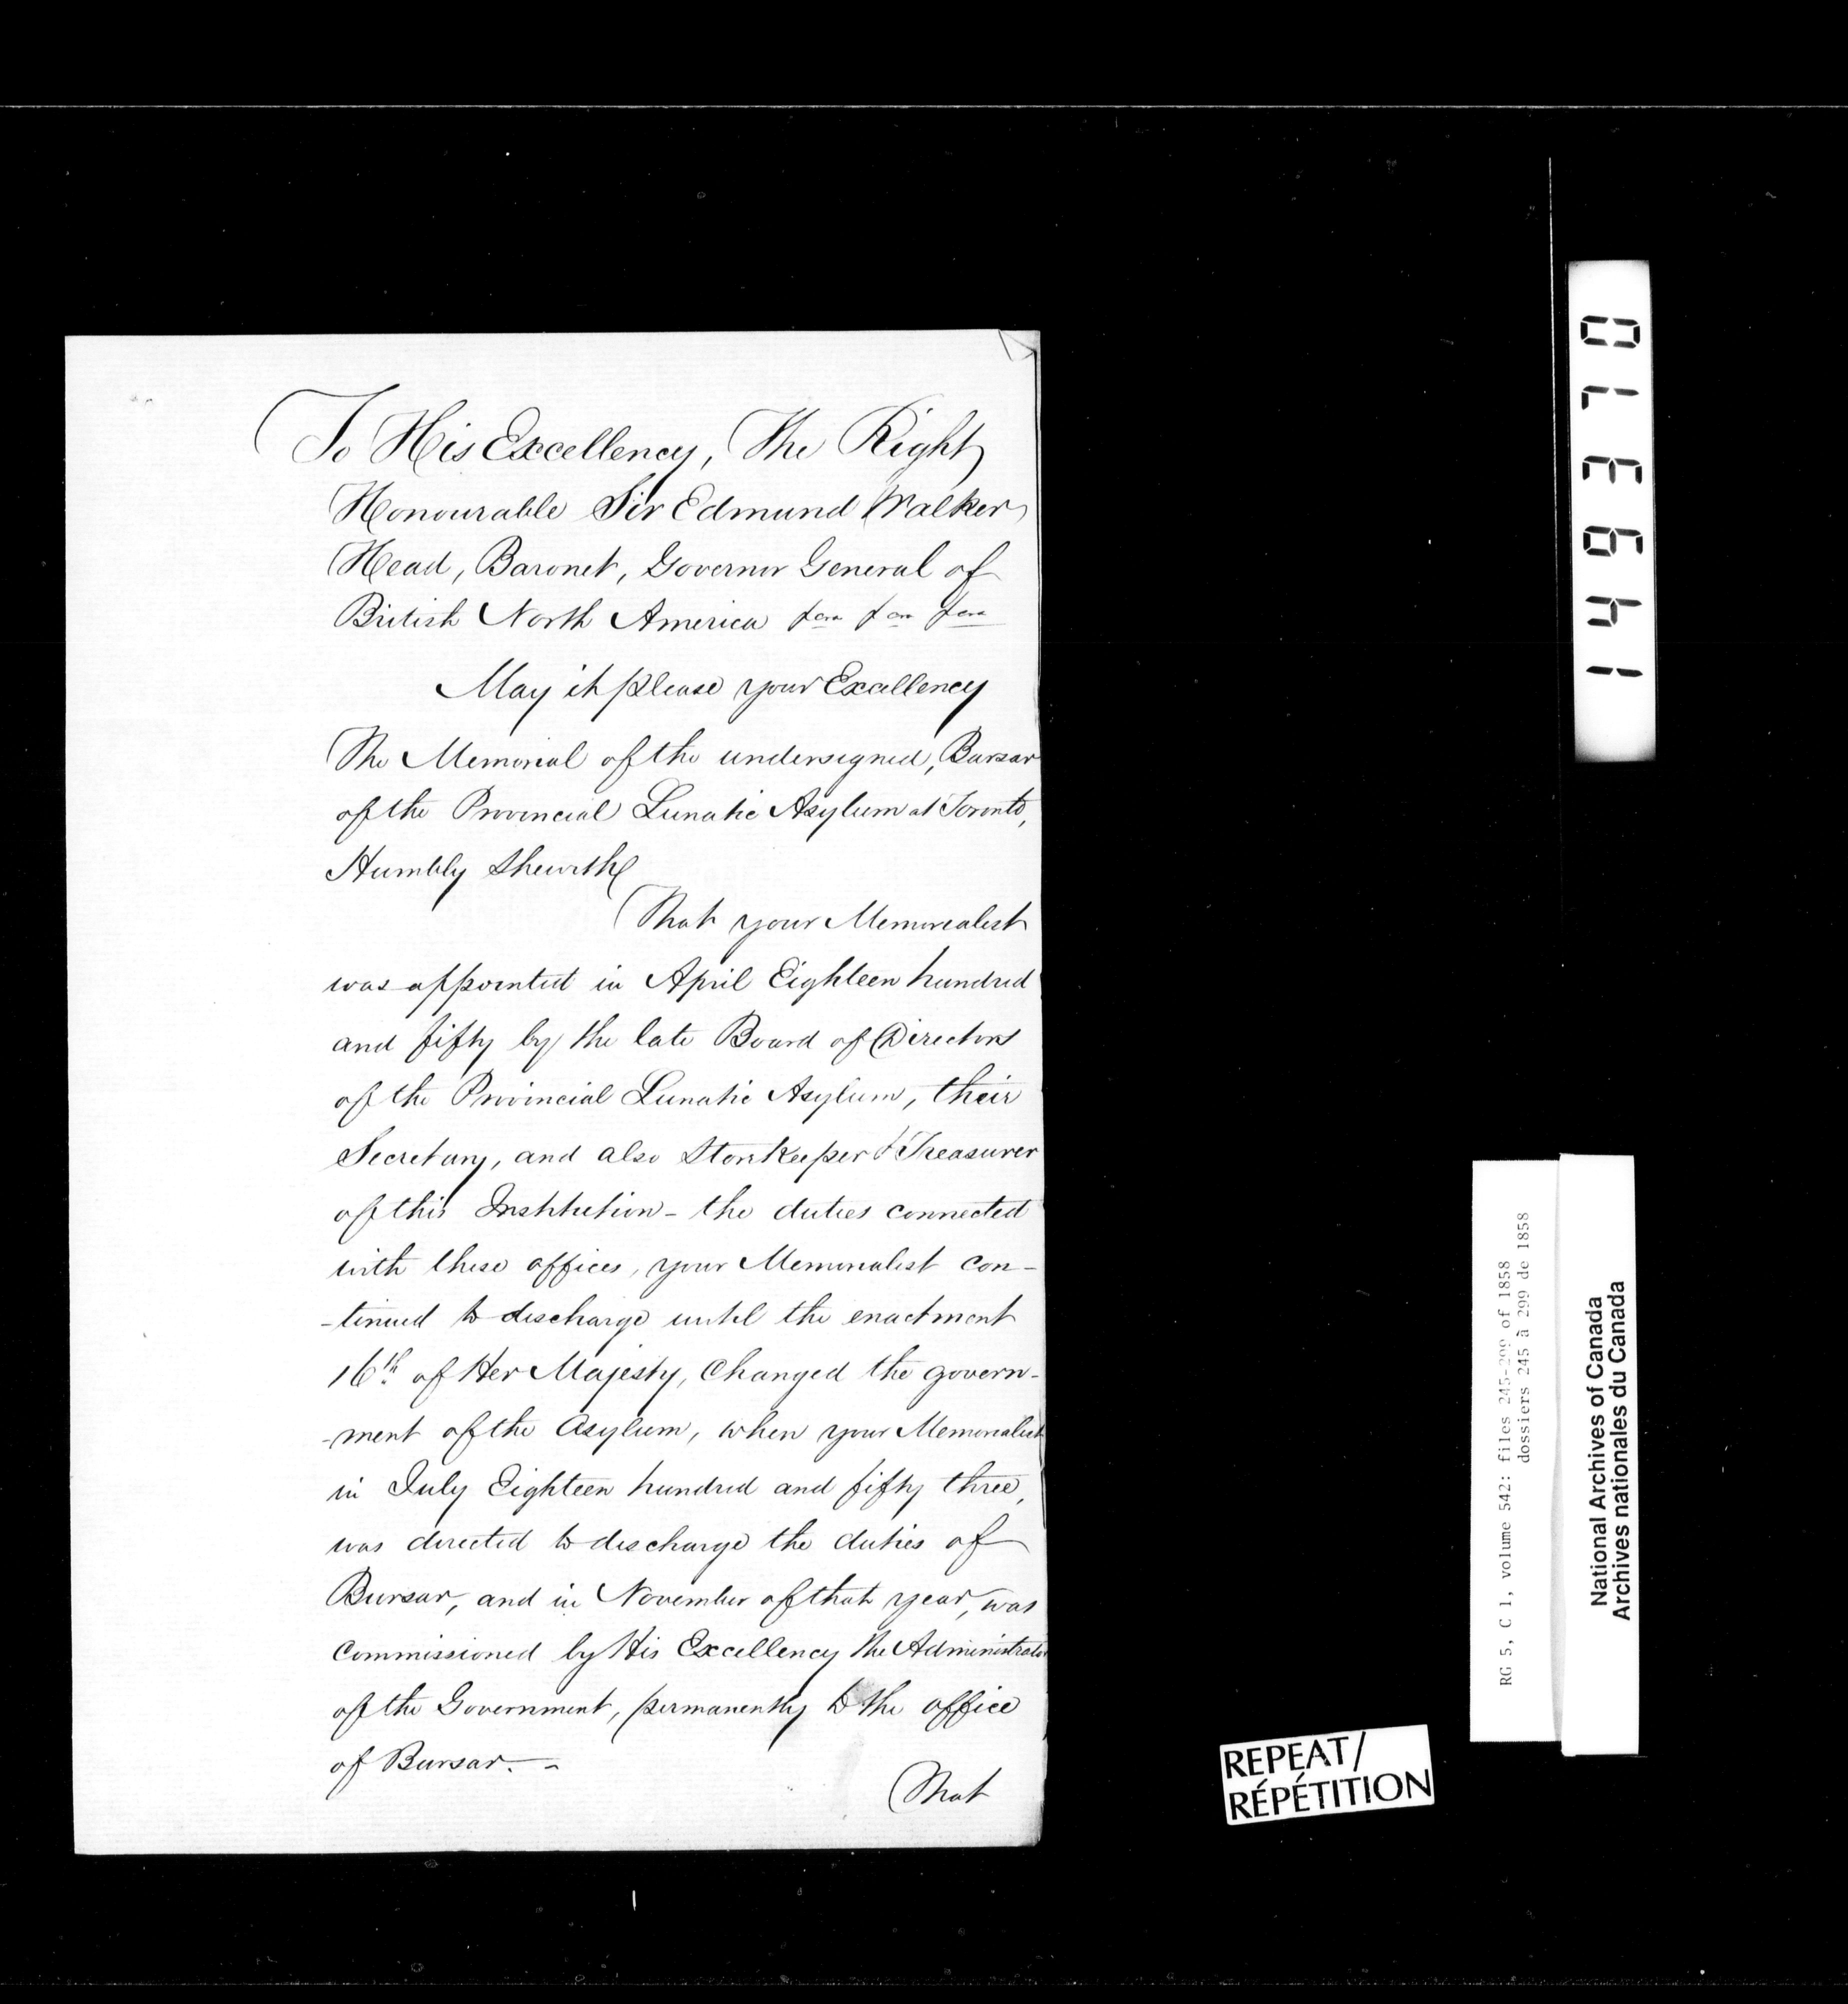 To His Excellency, The Right
Honourable Sir Edmund Walker
Head, Baronet, Governor General of
British North America &ca &ca &ca
May it please your Excellency
The Memorial of the undersigned, Bursar
of the Provincial Lunatic Asylum at Toronto,
Humbly Sheweth
That your Memorialist
was appointed in April Eighteen hundred
and fifty by the late Board of Directors
of the Provincial Lunatic Asylum, their
Secretary, and also Storekeeper & Treasurer
of this Institution - the duties connected
with these offices, your Memorialist con-
-tinued to discharge until the enactment
16th of Her Majesty, Changed the govern-
-ment of the Asylum, when your Memorialist
in July Eighteen hundred and fifty three,
was directed to discharge the duties of
Bursar, and in November of that year, was
Commissioned by His Excellency the Administrator
of the Government, permanently to the office
of Bursar. -
That
149310
RG 5, C 1, volume 542: files 245-299 of 1858
dossiers 245 à 299 de 1858
National Archives of Canada
Archives nationales du Canada
REPEAT/
RÉPÉTITION